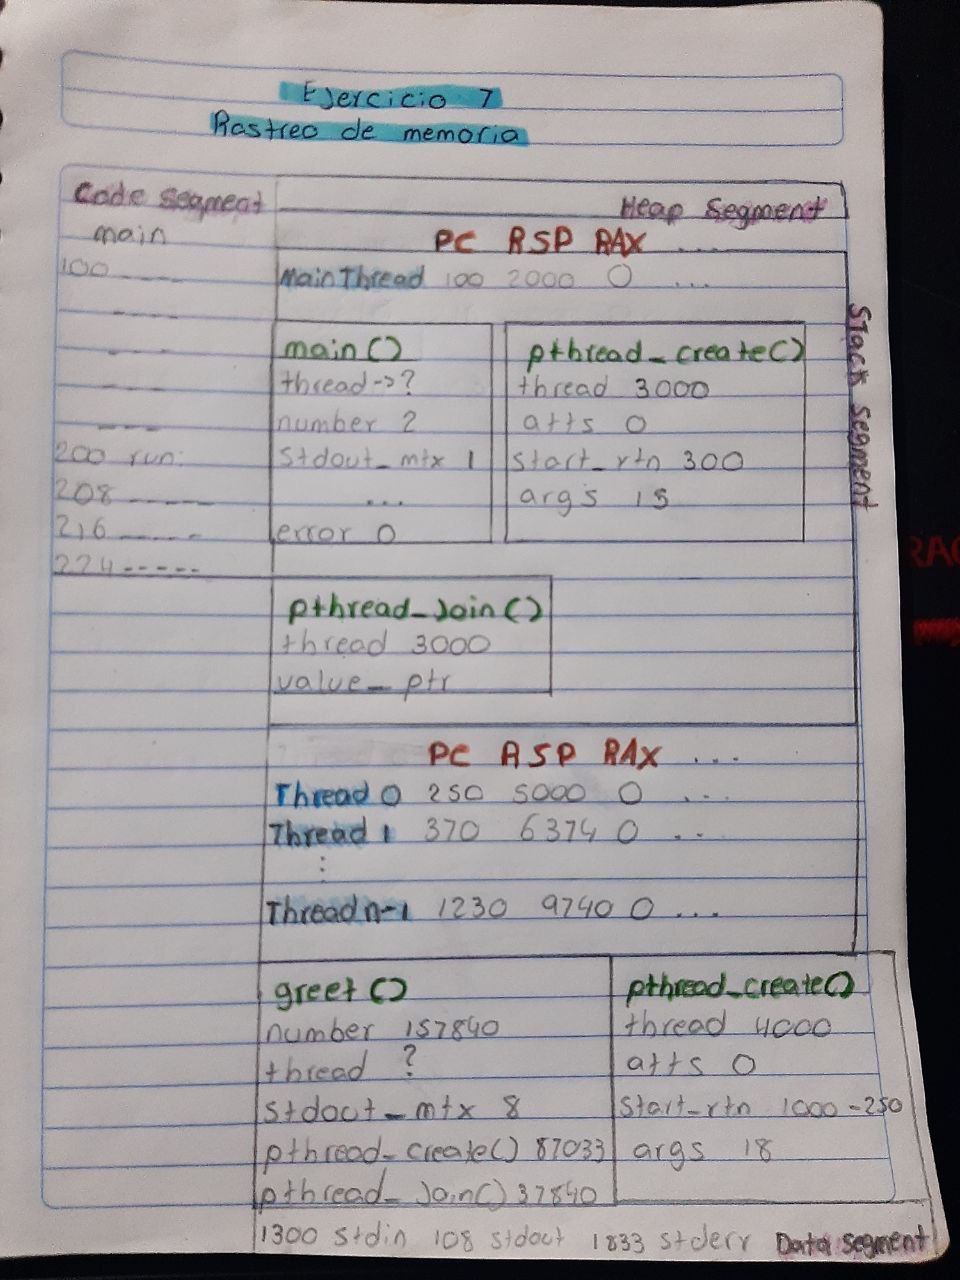 Ejercicio 7
Rastreo de memoria
Code Segment
main
100 ------
-----
----
----
----
200 run:
208 ------
216 ------
224 -----
Heap Segment
PC RSP RAX ...
Main Thread 100 2000 0 ...
main()
thread->?
number 2
stdout_mtx 1
...
error 0
pthread_create()
thread 3000
atts 0
start_rtn 300
args 15
Stack Segment
pthread_Join()
thread 3000
value_ptr
PC RSP RAX ...
Thread 0 250 5000 0 ...
Thread 1 370 6374 0 ..
⋮
Thread n-1 1230 9740 0 ...
greet()
number 157840
thread ?
stdout_mtx 8
pthread_create() 87033
pthread_Join() 37840
pthread_create()
thread 4000
atts 0
start_rtn 1000-250
args 18
1300 stdin 108 stdout 1833 stderr Data segment